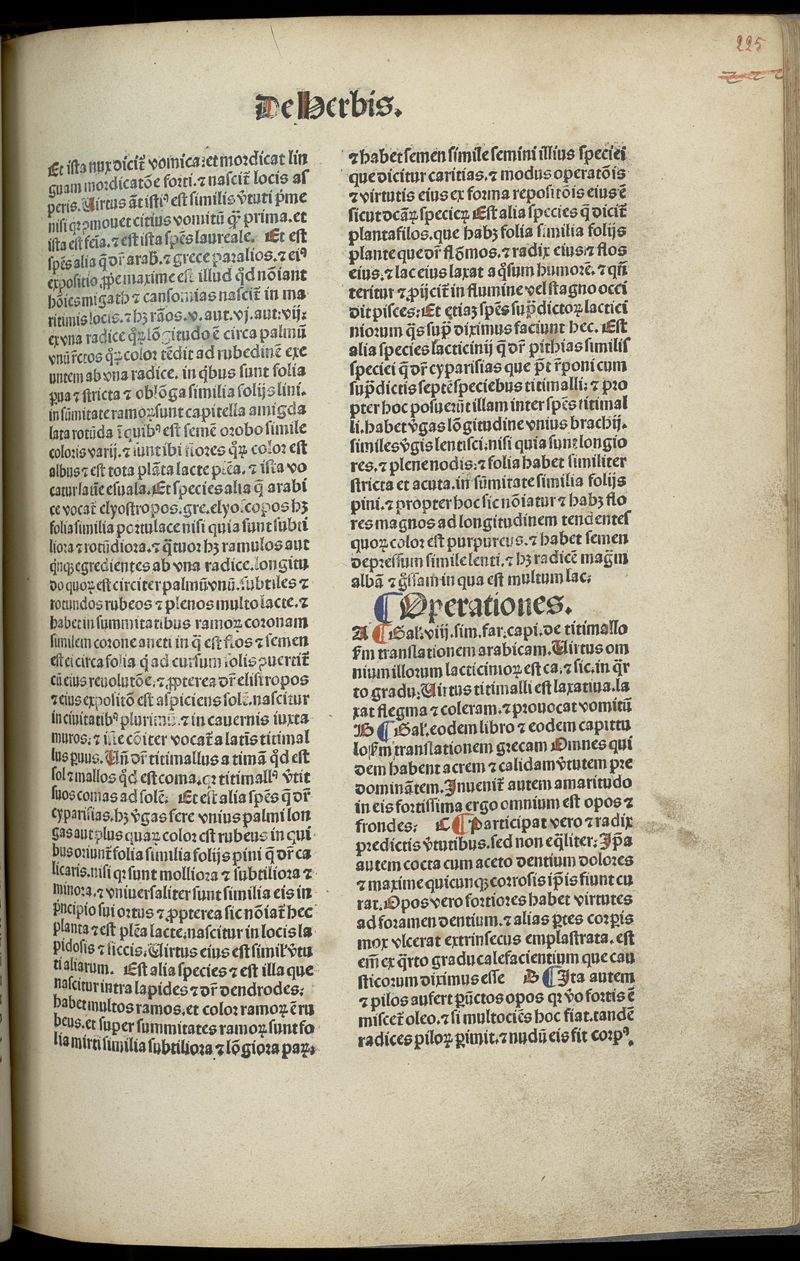 225
De Herbis.
Et ista nux dicit̃ vomica: et mordicat lin
guam mordicatõe forti. ⁊ nascit̃ locis as
peris. Uirtus ãt isti⁹ est similis ṽtuti p̃me
nisi qꝛ ꝓmouet citius vomitũ qᷓꝫ prima. et
ista est fẽia. ⁊ est ista sp̃es laureale. Et est
sp̃es alia q̃ dr̃ arab. ⁊ grece paralios. ⁊ ei⁹
expositio ꝓpe maxime est illud qd̃ nõiant
hoĩes migath ⁊ cansomias nascit̃ in ma
ritimis locis. ⁊ hꝫ rãos. v. aut. vj. aut: vij:
ex vna radice qᷓꝝ lõgitudo ẽ circa palmũ
vnũ r̃ctos qᷓꝝ color tẽdit ad rubedinẽ exe
untem ab vna radice. in qͥbus sunt folia
ꝑua ⁊ stricta ⁊ oblõga similia folijs lini.
in sũmitate ramoꝝ sunt capitella amigda
lata rotũda ĩ quib⁹ est semẽ orobo simile
coloris varij. ⁊ sunt ibi flores qᷓꝝ color est
albus ⁊ est tota plãta lacte plẽa. ⁊ ista vo
catur latĩe esuala. Et species alia q̃ arabi
ce vocat̃ elyostropos. gre. elyoscopos hꝫ
folia similia portulace nisi quia sunt subti
liora ⁊ rotũdiora. ⁊ q̃tuor hꝫ ramulos aut
qͥnqꝫ egredientes ab vna radice. longitu
do quoꝝ est circiter palmũ vnũ. subtiles ⁊
rotundos rubeos ⁊ plenos multo lacte. ⁊
habet in summitatibus ramoꝝ coronam
similem corone aneti in q̃ est flos ⁊ semen
est ei circa folia q̃ ad cursum solis ꝑuertit̃
cũ eius reuolutõe. ⁊ ꝓpterea dr̃ elistropos
⁊ eius expositõ est aspiciens solẽ. nascitur
in ciuitatib⁹ plurimũ. ⁊ in cauernis iuxta
muros. ⁊ iste cõiter vocat̃ a latĩs titimal
lus ꝑuus. Uñ dr̃ titimallus a timã qd̃ est
sol ⁊ mallos qd̃ est coma. qꝛ titimall⁹ ṽtit
suos comas ad solẽ. Et est alia sp̃es q̃ dr̃
cyparisias. hꝫ ṽgas fere vnius palmi lon
gas aut plus quaꝝ color est rubeus in qui
bus oriunt̃ folia similia folijs pini q̃ dr̃ ca
licaris. nisi qꝛ sunt molliora ⁊ subtiliora ⁊
minora. ⁊ vniuersaliter sunt similia eis in
pͥncipio sui ortus ⁊ ꝓpterea sic nõiat̃ hec
planta ⁊ est plẽa lacte. nascitur in locis la
pidosis ⁊ siccis. Uirtus eius est simil̓ ṽtu
ti aliarum. Est alia species ⁊ est illa que
nascitur intra lapides ⁊ dr̃ dendrodes:
habet multos ramos. et color ramoꝝ ẽ ru
beus. et super summitates ramoꝝ sunt fo
lia mirti similia subtiliora ⁊ lõgiora paꝝ.
⁊ habet semen simile semini illius speciei
que dicitur caritias. ⁊ modus operatõis
⁊ virtutis eius ex forma repositõis eius ẽ
sicut dcãꝝ specieꝝ Est alia species q̃ dicit̃
plantafilos. que habꝫ folia similia folijs
plante que dr̃ flõmos. ⁊ radix eius. ⁊ flos
eius. ⁊ lac eius laxat aq̃sum humorẽ. ⁊ qñ
teritur ⁊ ꝓijcit̃ in flumine vel stagno occi
dit pisces: Et etiaꝫ sp̃es sup̃dictoꝝ lactici
niorum q̃s sup̃ diximus faciunt hec. Est
alia species lacticinij q̃ dr̃ pithias similis
speciei q̃ dr̃ cyparisias que p̃t r̃poni cum
sup̃dictis septẽ speciebus titimalli: ⁊ pro
pter hoc posuerũt illam inter sp̃es titimal
li. habet ṽgas lõgitudine vnius brachij.
similes ṽgis lentisci. nisi quia sunt longio
res. ⁊ plene nodis. ⁊ folia habet similiter
stricta et acuta. in sũmitate similia folijs
pini. ⁊ propter hoc sic nõiatur ⁊ habꝫ flo
res magnos ad longitudinem tendentes
quoꝝ color est purpureus. ⁊ habet semen
depressum simile lenti. ⁊ hꝫ radicẽ magñ
albã ⁊ g̃ssam in qua est multum lac.
¶ Operationes.
A ¶ Gal̓. viij. sim. far. capi. de titimallo
s̃m translationem arabicam. Uirtus om
nium illorum lacticinioꝝ est ca. ⁊ sic. in q̃r
to gradu. Uirtus titimalli est laxatiua. la
xat flegma ⁊ coleram. ⁊ prouocat vomitũ
B ¶ Gal̓. eodem libro ⁊ eodem capittu
lo s̃m translationem grecam Omnes qui
dem habent acrem ⁊ calidam ṽtutem pre
dominãtem. Inuenit̃ autem amaritudo
in eis fortissima ergo omnium est opos ⁊
frondes: C ¶ Participat vero ⁊ radix
predictis ṽtutibus. sed non eq̃liter: Ip̃a
autem cocta cum aceto dentium dolores
⁊ maxime quicunqꝫ corrosis ip̃is fiunt cu
rat. Opos vero fortiores habet virtutes
ad foramen dentium. ⁊ alias ꝑtes corꝑis
mox vlcerat extrinsecus emplastrata. est
em̃ ex q̃rto gradu calefacientium que cau
sticorum diximus esse D ¶ Ita autem
⁊ pilos aufert pũctos opos qꝛ ṽo fortis ẽ
miscet̃ oleo. ⁊ si multociẽs hoc fiat. tandẽ
radices piloꝝ ꝑimit. ⁊ nudũ eis fit corp⁹.